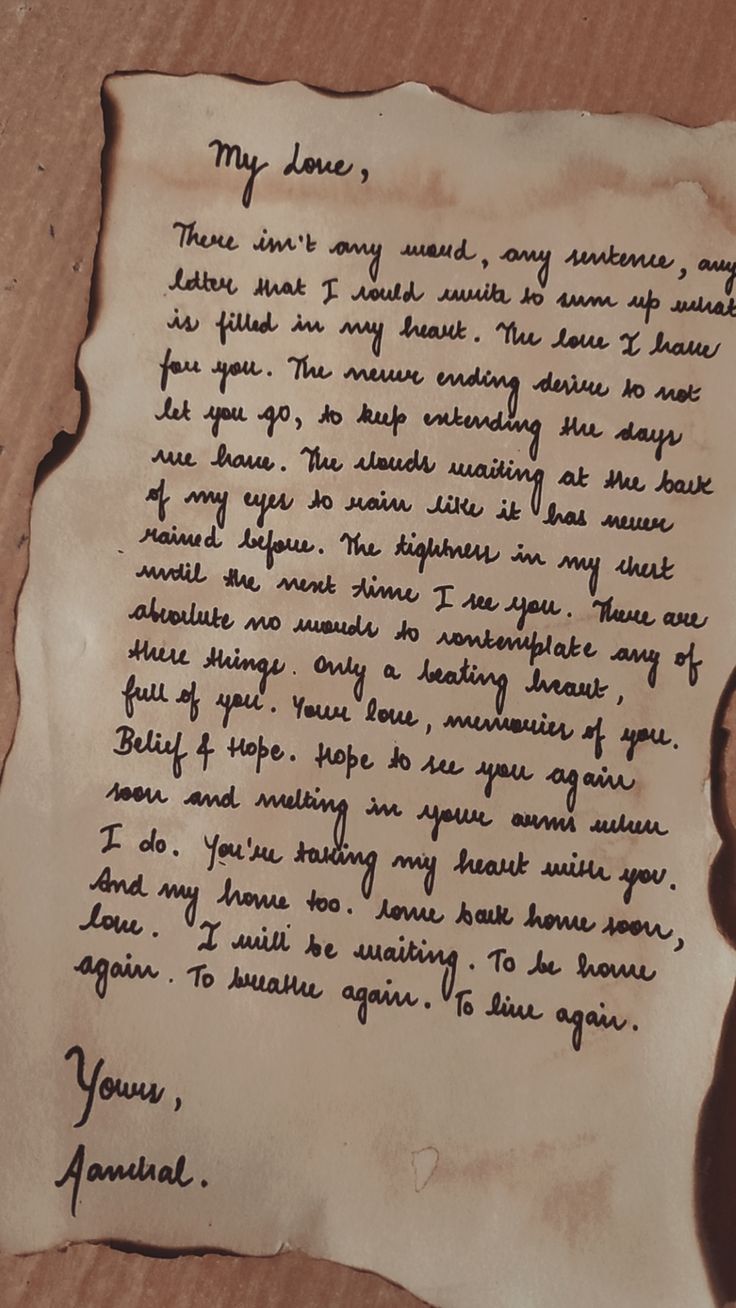 My Love,
There isn't any word, any sentence, any
letter that I could write to sum up what
is filled in my heart. The love I have
for you. The never ending desire to not
let you go, to keep extending the days
we have. The clouds waiting at the back
of my eyes to rain like it has never
rained before. The tightness in my chest
until the next time I see you. There are
absolute no words to contemplate any of
these things. Only a beating heart,
full of you. Your love, memories of you.
Belief & Hope. Hope to see you again
soon and melting in your arms when
I do. You're taking my heart with you.
And my home too. Come back home soon,
love. I will be waiting. To be home
again. To breathe again. To live again.
Yours,
Aanchal.